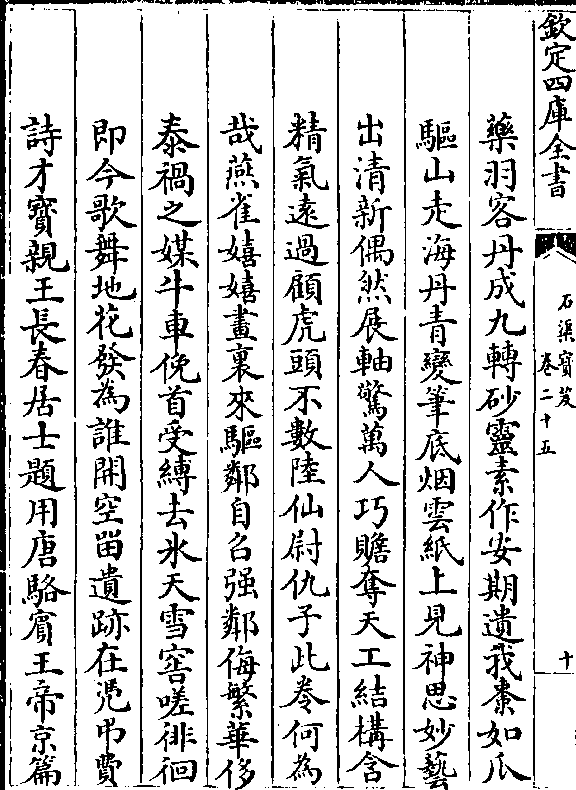 欽定四庫全書
石渠寶笈
卷二十五
十
藥羽客丹成九轉砂靈素作安期遺我棗如瓜
驅山走海丹青變筆底烟雲紙上見神思妙藝
出清新偶然展軸驚萬人巧贍奪天工結構含
精氣遠過顧虎頭不數陸仙尉仇子此卷何為
哉燕雀嬉嬉畫裏來驅鄰自召强鄰侮繁華侈
泰禍之媒牛車俛首受縛去氷天雪窖嗟徘徊
即今歌舞地花發為誰開空留遺跡在凴弔費
詩才寳親王長春居士題用唐駱賓王帝京篇